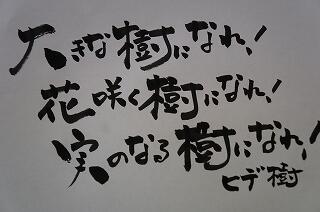 大きな樹になれ!
花咲く樹になれ!
実のなる樹になれ!
ヒデ樹